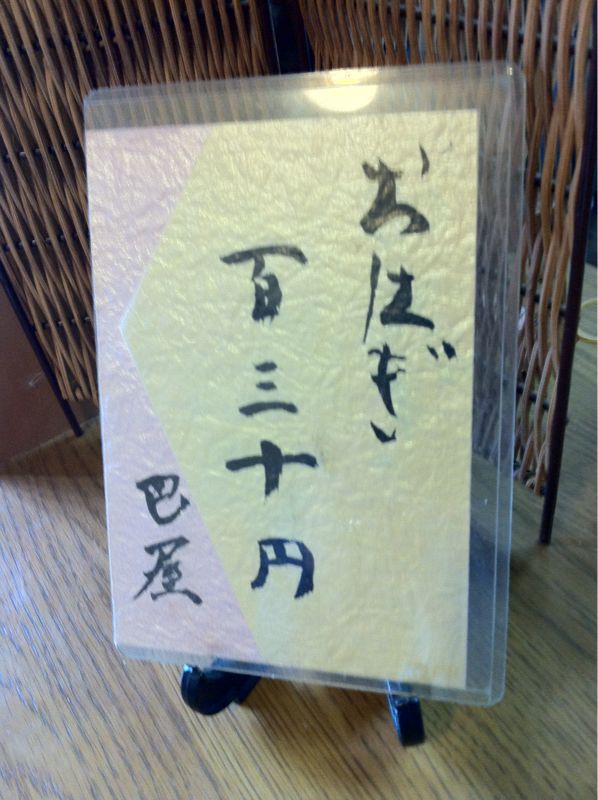 おはぎ
百三十円
巴屋